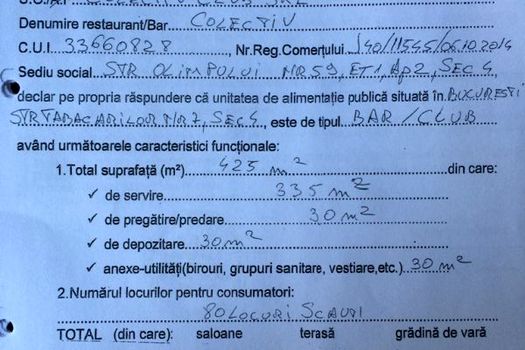 S.C./A.F. COLECTIV CLUB SRL
Denumire restaurant/Bar COLECTIV
C.U.I. 33660828, Nr.Reg.Comerțului J40/11545/06.10.2014
Sediu social STR OLIMPULUI NR 59, ET1, Ap2, SEC 4,
declar pe propria răspundere că unitatea de alimentație publică situată în BUCUREȘTI
STR TABACARILOR NR 7, SEC 4, este de tipul BAR / CLUB
având următoarele caracteristici funcționale:
1.Total suprafață (m²) 425 m² din care:
✓ de servire 335 m²
✓ de pregătire/predare 30 m²
✓ de depozitare 30 m²
✓ anexe-utilități(birouri, grupuri sanitare, vestiare,etc.) 30 m²
2.Numărul locurilor pentru consumatori:
80 LOCURI SCAUN
TOTAL (din care): saloane terasă grădină de vară